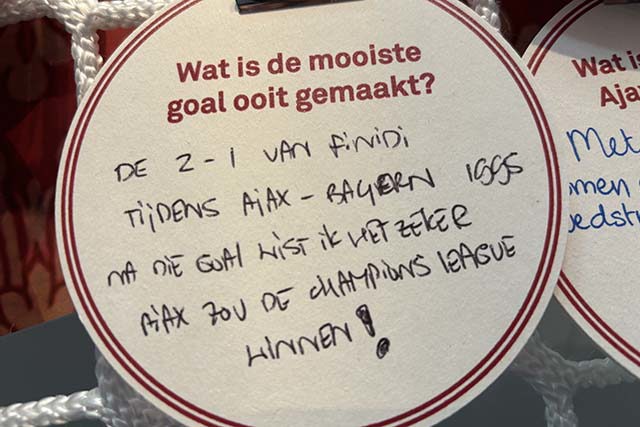 Wat is de mooiste
goal ooit gemaakt?
DE 2-1 VAN FINIDI
TIJDENS AJAX - BAYERN 1995
NA DIE GOAL WIST IK HET ZEKER
AJAX ZOU DE CHAMPIONS LEAGUE
WINNEN!
Wat is
Ajax
Met
men